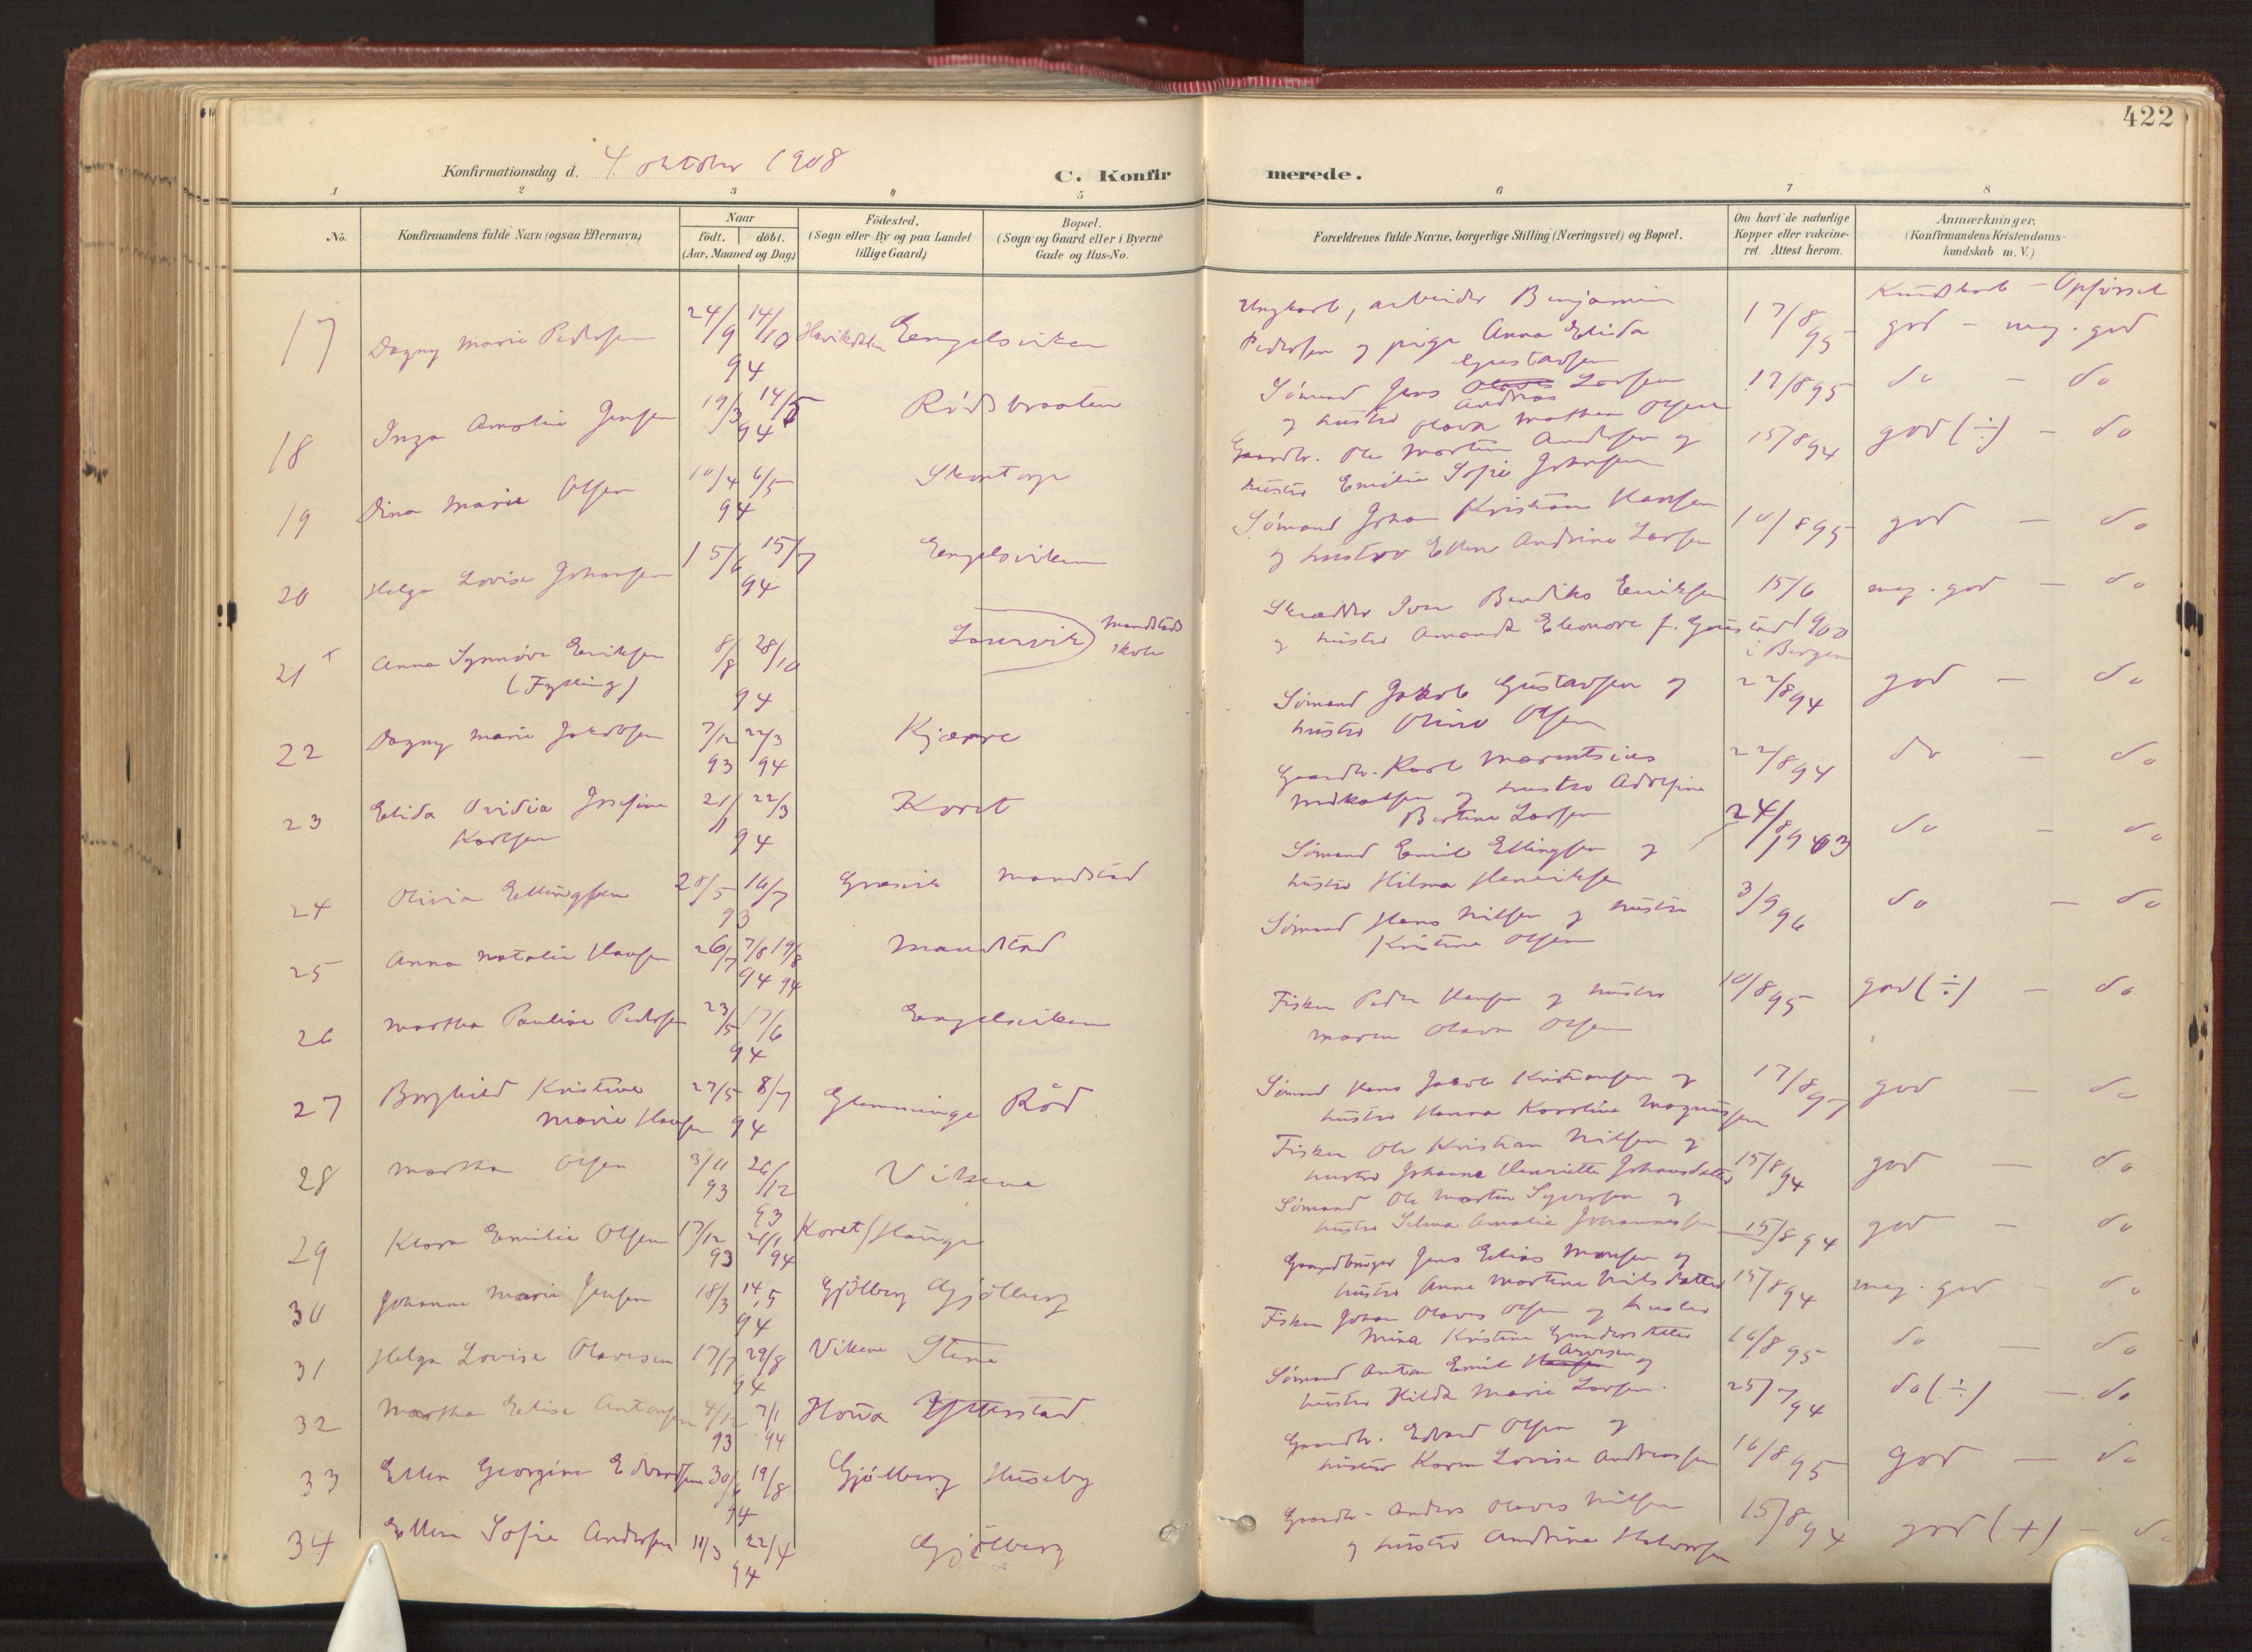 422
Konfirmationsdag d. 4. oktober 1908
C. Konfirmerede.
1 2 3 4 5 6 7 8
No.
Konfirmandens fulde Navn (ogsaa Efternavn)
Naar
födt. döbt.
(Aar, Maaned og Dag)
Födested.
(Sogn eller By og paa Landet
tillige Gaard)
Bopæl.
(Sogn og Gaard eller i Byerne
Gade og Hus-No.
Forældrenes fulde Navne, borgerlige Stilling (Næringsvei) og Bopæl.
Om havt de naturlige
Kopper eller vakcine-
ret. Attest herom.
Anmærkninger.
(Konfirmandens Kristendoms-
kundskab m. V.)
Kundskab - Opførsel
17 Dagny Marie Pedersen 24/9 14/10 94 Engelsviken
Ungkarl, arbeider Benjamin
Pedersen og pige Anna Elida
Gustavsen
17/8 95 god - meg. god
18 Inga Amalia Jensen 19/3 14/5 94 Rödsbraaten
Sömand Jens Olaves Larsen
Andreas
og hustru Olava Mathea Olsen
17/8 95 do - do
19 Dina Marie Olsen 10/4 6/5 94 Skontorp
Gaardbr. Ole Martin Andersen og
hustru Emilie Sofie Johansen
15/8 94 god (÷) - do
20 Helga Lovise Johansen 15/6 15/7 94 Engelsviken
Sömand Johan Kristian Hansen
og hustru Ellen Andrine Larsen
10/8 95 god - do
21 + Anna Synnöve Eriksen 8/8 28/10
(Fylling) 94
Laurvik) Mandstad
skole
Skrædder Iver Bendiks Eriksen
og hustru Amanda Eleonore f. Gaustad
15/6 1900
i Bergen
meg. god - do
22 Dagny Marie Jakobsen 7/12 93 22/3 94 Kjærre
Sömand Jakob Gustavsen og
hustru Oline Olsen
22/8 94 god - do
23 Elida Ovidia Josefine
Karlsen 21/1 22/3 94 Koret
Gaardbr. Karl Marentsius
Mikalsen og hustru Adolfine
Bertine Larsen
22/8 94 do - do
24 Olivia Ellingsen 28/5 16/7 93 Græsvik Mandstad
Sömand Emil Ellingsen og
hustru Hilma Henriksen
24/8 1903 do - do
25 Anna Natalie Hansen 26/7 7/8 19/8 94 94 Mandstad
Sömand Hans Nilsen og hustru
Kristine Olsen
3/9 96 do - do
26 Martha Pauline Pedersen 23/5 17/6 94 Engelsviken
Fisker Peder Hansen og hustru
Maren Olava Olsen
10/8 95 god (÷) - do
27 Borghild Kristine
Marie Hansen 27/5 8/7 94 Glemminge Röd
Sömand Hans Jakob Kristiansen og
hustru Hanna Karoline Magnussen
17/8 97 god - do
28 Martha Olsen 3/11 93 26/12 93 Vikene
Fisker Ole Kristian Nilsen og
hustru Johanne Henriette Johansdatter
15/8 94 god - do
29 Klara Emilie Olsen 17/12 93 21/1 94 Koret/Hauge
Sömand Ole Martin Syversen og
hustru Selma Amalie Johannessen
15/8 94 god - do
30 Johanne Marie Jensen 18/3 14/5 94 Gjölberg Gjölberg
Gaardbruger Jens Elias Monsen og
hustru Anne Martine Nilsdatter
15/8 94 meg. god - do
31 Helga Lovise Olavesen 17/7 29/8 94 Vikene Stene
Fisker Johan Olaves Olsen og hustru
Mina Kristine Gundersdatter
16/8 95 do - do
32 Martha Elise Antonsen 4/12 93 7/1 94 Houa Ytterstad
Arvesen
Sömand Anton Emil Hansen og
hustru Hilda Marie Larsen.
25/7 94 do (÷) - do
33 Ellen Georgine Edvardsen 30/6 19/8 94 Gjölberg Huseby
Gaardbr. Edvard Olsen og
hustru Karen Lovise Andreassen
16/8 95 god - do
34 Ellen Sofie Andersen 11/3 22/4 94 Gjölberg
Gaardbr. Anders Olaves Nilsen
og hustru Andrine Halvorsen
15/8 94 god (+) - do